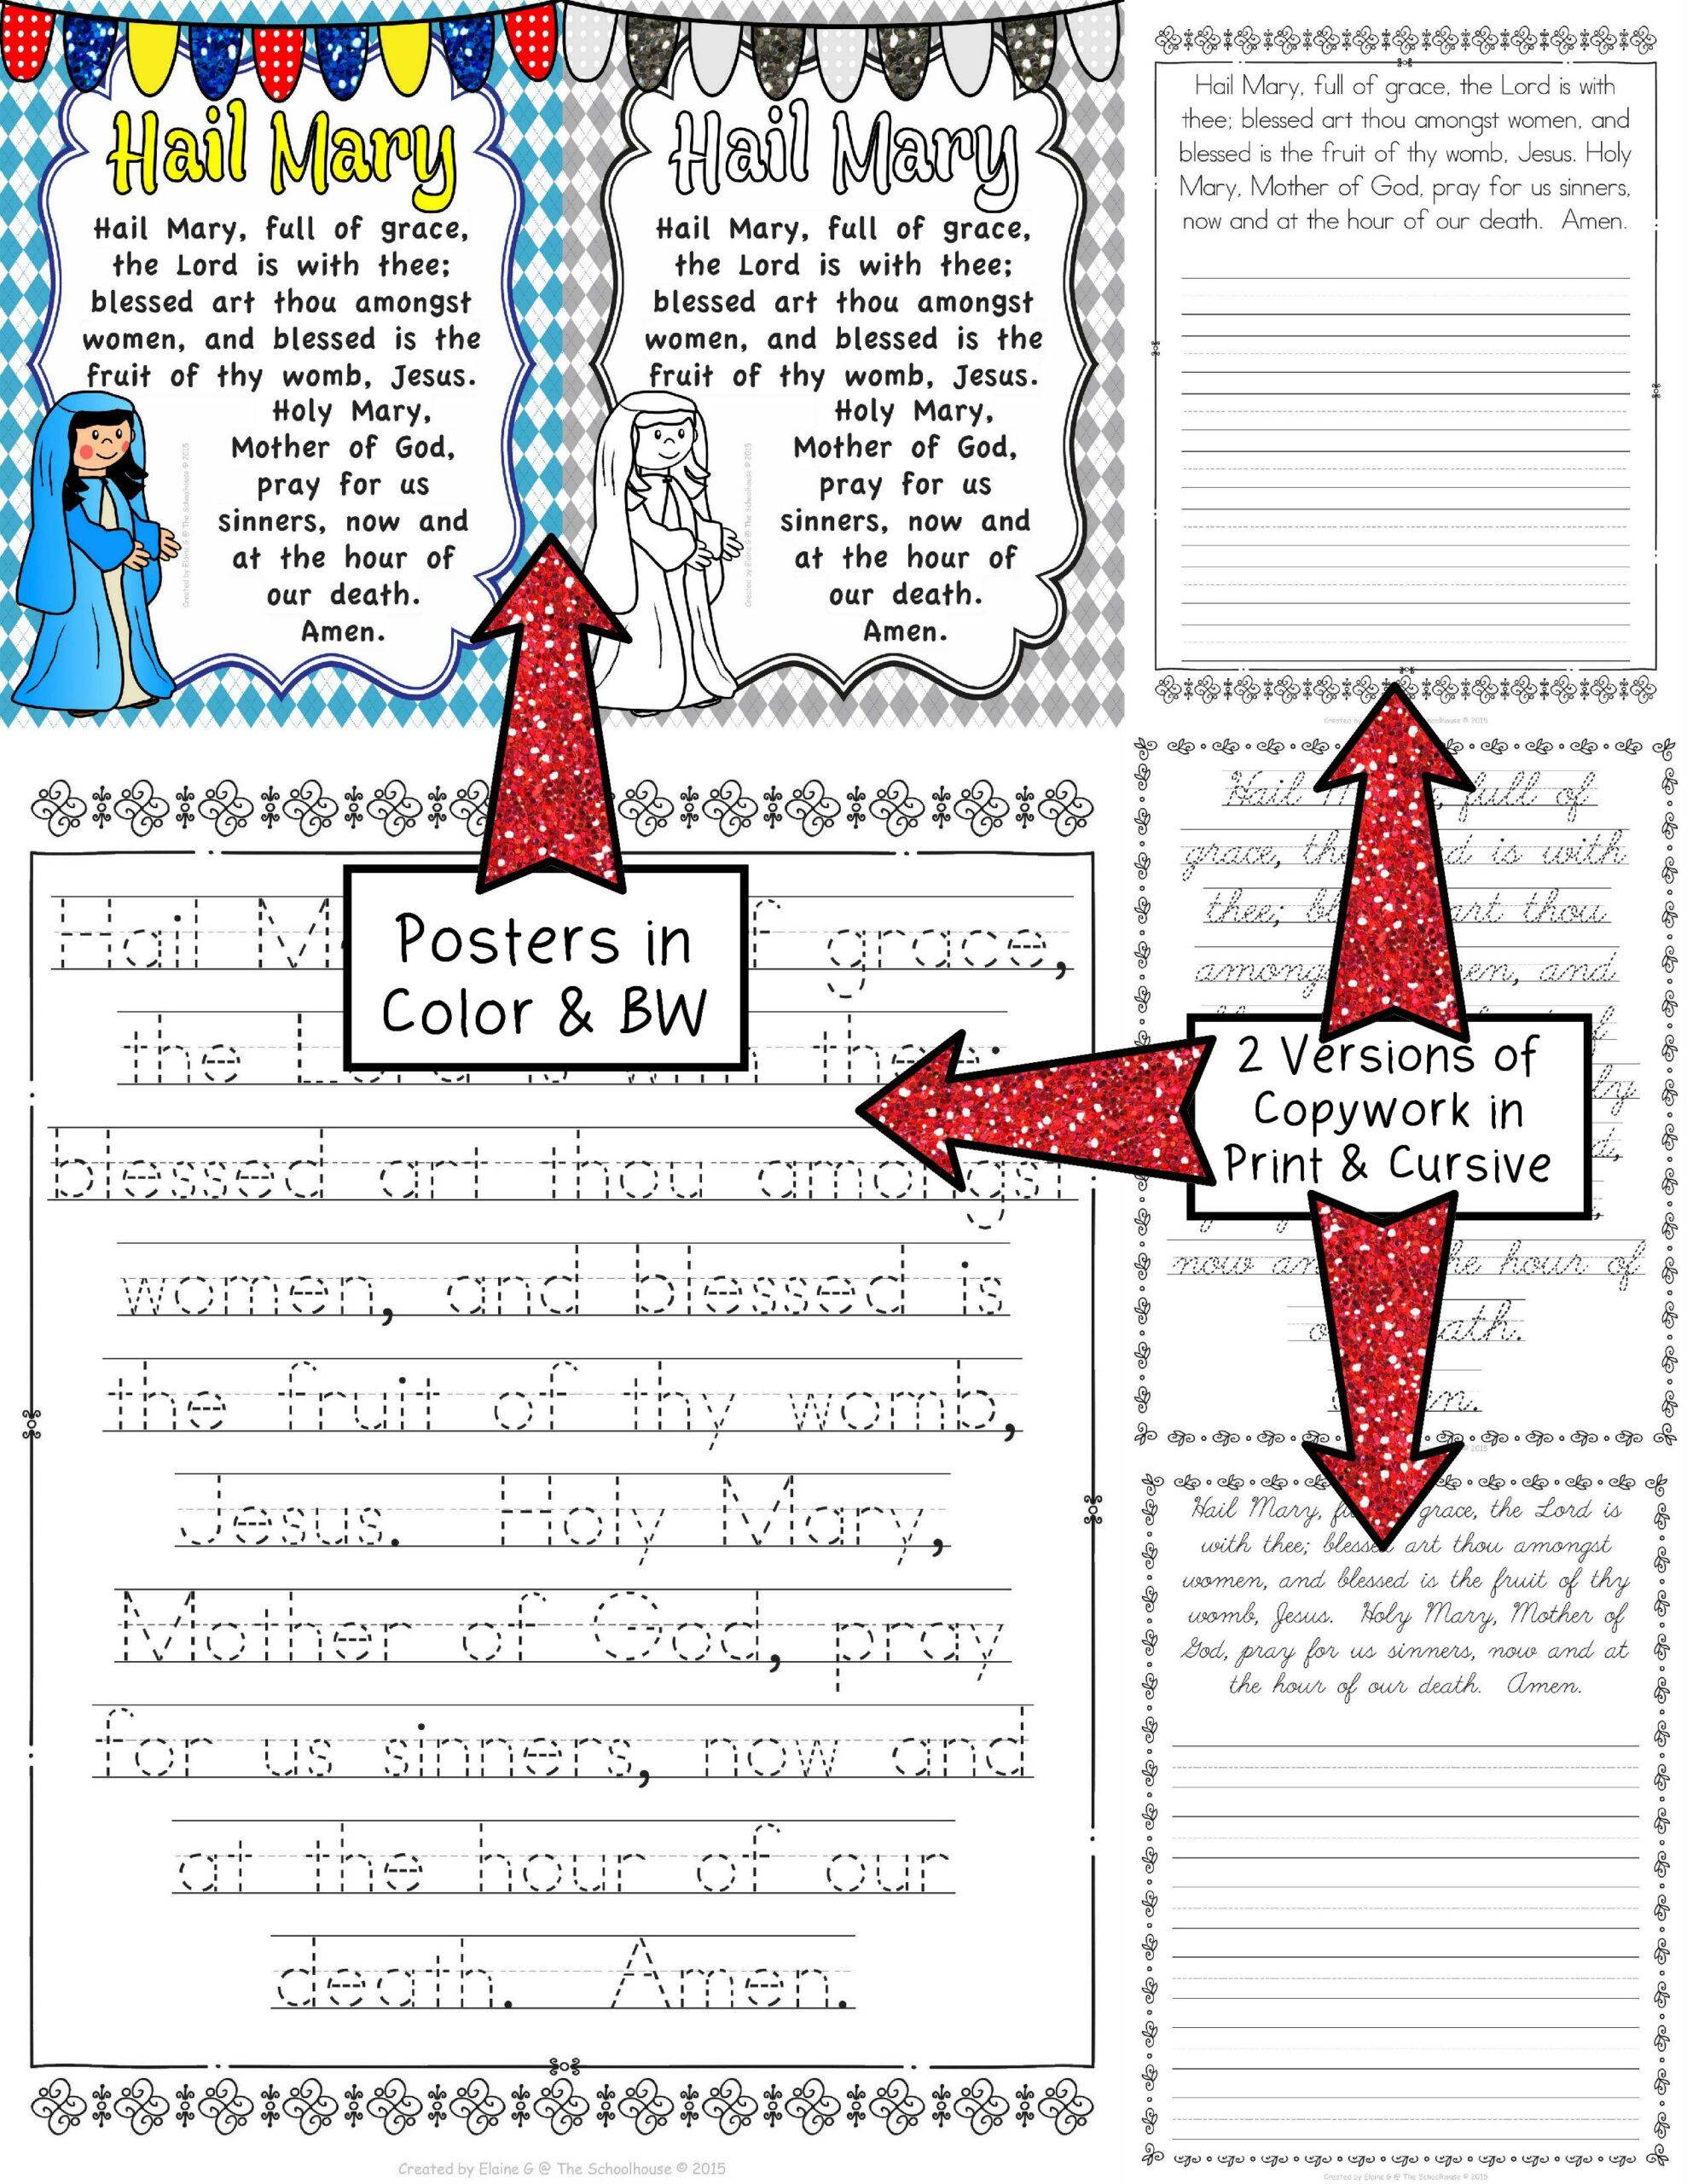 Hail Mary
Hail Mary, full of grace,
the Lord is with thee;
blessed art thou amongst
women, and blessed is the
fruit of thy womb, Jesus.
Holy Mary,
Mother of God,
pray for us
sinners, now and
at the hour of
our death.
Amen.
Created by Elaine G @ The Schoolhouse © 2015
Hail Mary
Hail Mary, full of grace,
the Lord is with thee;
blessed art thou amongst
women, and blessed is the
fruit of thy womb, Jesus.
Holy Mary,
Mother of God,
pray for us
sinners, now and
at the hour of
our death.
Amen.
Created by Elaine G @ The Schoolhouse © 2015
Hail Mary, full of grace, the Lord is with
thee; blessed art thou amongst women, and
blessed is the fruit of thy womb, Jesus. Holy
Mary, Mother of God, pray for us sinners,
now and at the hour of our death. Amen.
Posters in
Color & BW
Hail grace,
the
blessed art thou amongst
women, and blessed is
the fruit of thy womb,
Jesus. Holy Mary,
Mother of God, pray
for us sinners, now and
at the hour of our
death. Amen.
Created by Elaine G @ The Schoolhouse © 2015
Hail full of
grace, is with
thee; art thou
and
2 Versions of
Copywork in
Print & Cursive
now hour of
Hail Mary, grace, the Lord is
with thee; blessed art thou amongst
women, and blessed is the fruit of thy
womb, Jesus. Holy Mary, Mother of
God, pray for us sinners, now and at
the hour of our death. Amen.
Created by Elaine G @ The Schoolhouse © 2015